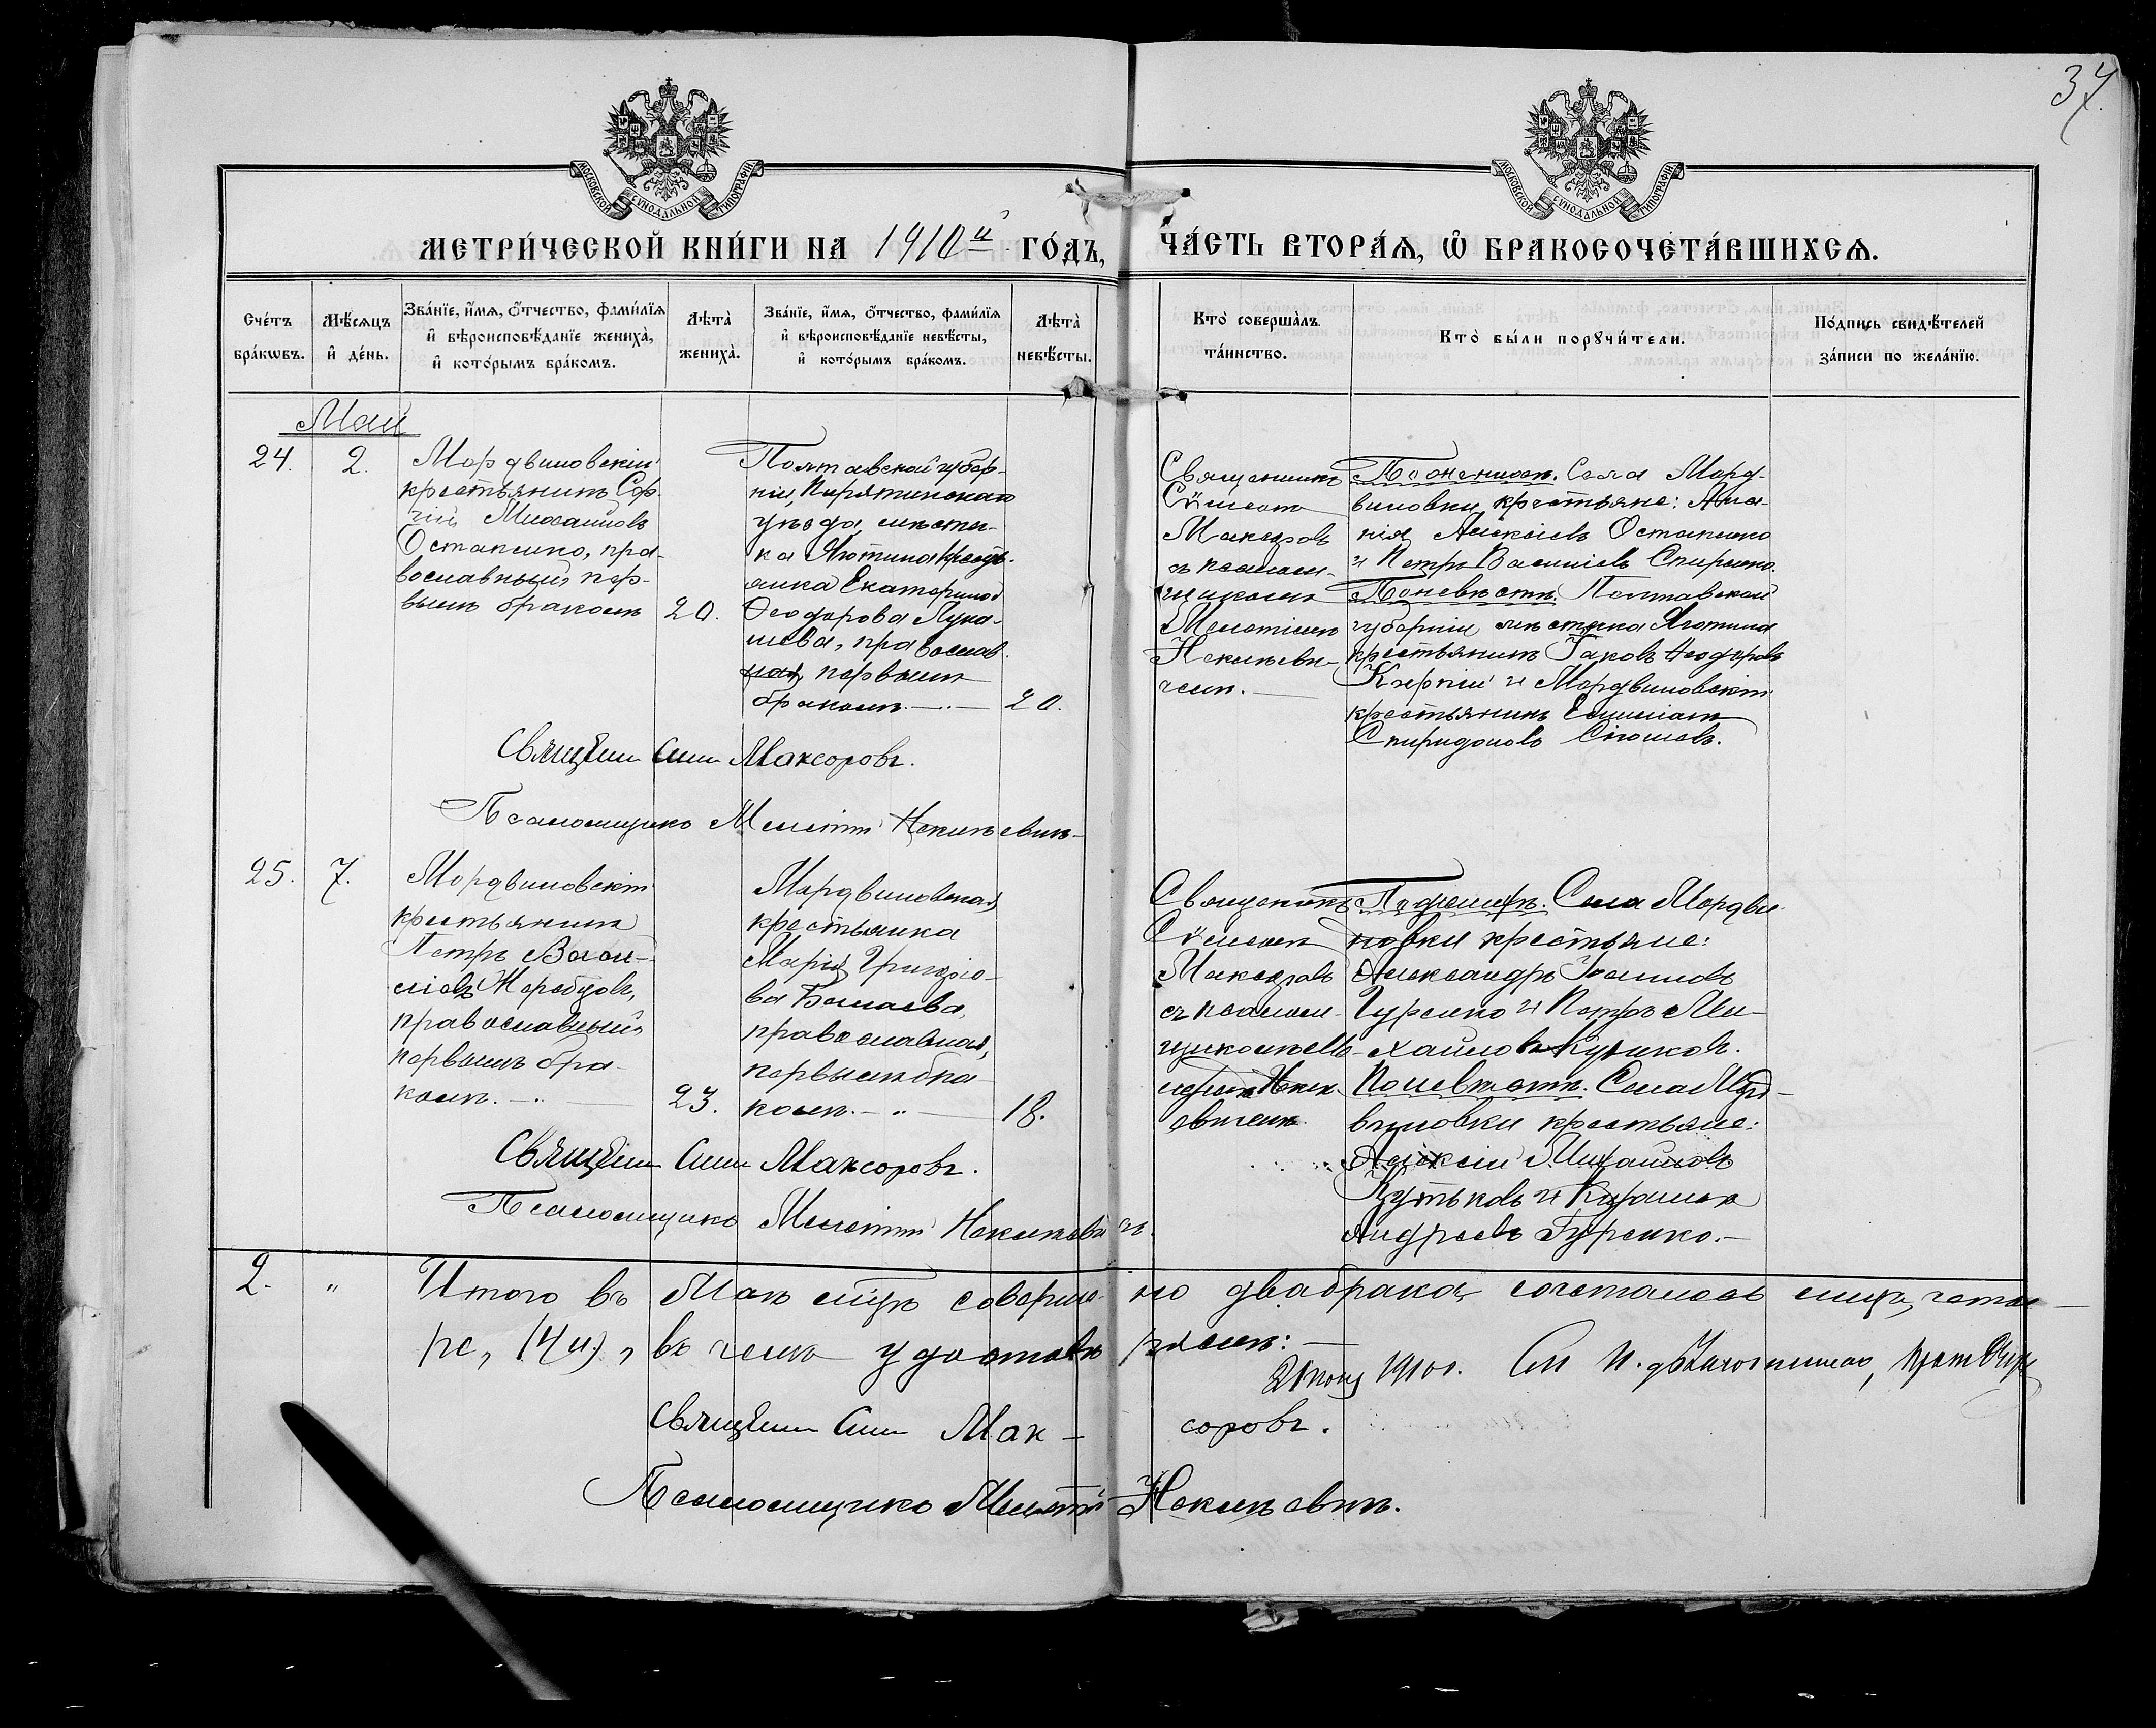 37
МОСКОВСКОЙ СѴНОДАЛЬНОЙ ТИПОГРАФІИ
МОСКОВСКОЙ СѴНОДАЛЬНОЙ ТИПОГРАФІИ
МЕТРИ́ЧЕСКОЙ КНИ́ГИ НА 1910й ГО́ДЪ,
ЧА́СТЬ ВТОРА́Я, Ѡ҆ БРАКОСОЧЕТА́ВШИХСЯ.
Сче́тъ
бра́кѡвъ.
Мѣ́сяцъ
и҆ де́нь.
Зва́нїе, и҆́мя, ѻ҆́тчество, фами́лїя
и҆ вѣроисповѣ́данїе жениха̀,
и҆ кото́рымъ бра́комъ.
Лѣта̀
жениха̀.
Зва́нїе, и҆́мя, ѻ҆́тчество, фами́лїя
и҆ вѣроисповѣ́данїе невѣ́сты,
и҆ кото́рымъ бра́комъ.
Лѣта̀
невѣ́сты.
Кто̀ соверша̀лъ
та́инство.
Кто̀ бы́ли порꙋчи́тели.
По́дпись свидѣ́телей
за́писи по жела́нїю.
Май
24.
2.
Мордвиновскій
крестьянинъ Сер-
гій Михаиловъ
Остапенко, пра-
вославный, пер-
вымъ бракомъ
20.
Полтавской губер-
ніи, Пирятинскаго
уѣзда, мѣстеч-
ка Яготина крестья-
янка Екатерина
Ѳеодорова Лука-
шева, православ-
ная, первымъ
бракомъ.
20.
Священникъ
Сѵмеонъ
Максоровъ
съ псалом-
щикомъ
Мелетіемъ
По женихѣ. Села Морд-
виновки крестьяне: Ана-
нія Алексіевъ Остапенко
и Петръ Василіевъ Спиренко.
По невѣстѣ. Полтавской
губерніи мѣстечка Яготина
крестьянинъ Іаковъ Ѳеодоровъ
и Мордвиновскій
крестьянинъ
Спиридоновъ
Священ Сим Максоровъ.
Псаломщикъ Мелетій
25.
7.
Мордвиновскій
крестьянинъ
Петръ Васи-
ліевъ Жеребцовъ,
православный,
первымъ бра-
комъ.
23.
Мордвиновская
крестьянка
Марія Григоріо-
ва
православная,
первымъ бра-
комъ.
18.
Священникъ
Сѵмеонъ
Максоровъ
съ псалом-
щикомъ Ме-
По женихѣ. Села Мордви-
новки крестьяне:
Александръ Іоанновъ
Гуренко и Петръ Ми-
хаиловъ Куликовъ.
По невѣстѣ. Села Морд-
виновки крестьяне:
Алексій Михаиловъ
Кутьковъ и
Андреевъ Гуренко.
Священ Сим Максоровъ.
Псаломщикъ Мелетій
2. " Итого въ Маѣ мцѣ соверше- но два брака, сочеталось лицъ, четы-
ре, (4 л.), въ чемъ удостовѣ- ряемъ:
1910 г.
Священ Сим Мак- соровъ.
Псаломщикъ Мелетій